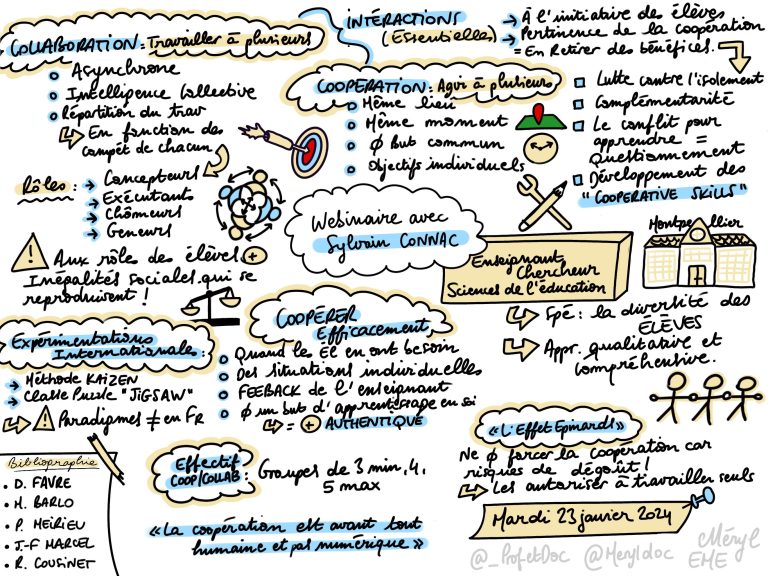 COLLABORATION : Travailler à plusieurs
Asynchrone
Intelligence Collective
Répartition du trav
En fonction des
compét de chacun
Rôles :
Concepteurs
Exécutants
Chômeurs
Gêneurs
Aux rôles des élèves
Inégalités sociales qui se
reproduisent !
INTÉRACTIONS
(Essentielle)
À l'initiative des élèves
Pertinence de la coopération
= En Retirer des bénéfices.
COOPÉRATION : Agir à plusieurs
Même lieu
Même moment
Ø But commun
Objectifs individuels
Lutte contre l'isolement
Complémentarité
Le conflit pour
apprendre =
Questionnement
Développement des
"COOPERATIVE SKILLS"
Webinaire avec
Sylvain CONNAC
Montpellier
Enseignant
Chercheur
Sciences de l'éducation
Spé : la diversité des
ÉLÈVES
Appr. qualitative et
compréhensive.
Expérimentations
Internationales :
Méthode KAIZEN
Classe Puzzle "JIGSAW"
Paradigmes ≠ en FR
COOPÉRER
Efficacement
Quand les él en ont besoin
Des situations individuelles
FEEBACK de l'enseignant
Ø un but d'apprentissage en soi
= + AUTHENTIQUE
Bibliographie
• D. FAVRE
• M. BARLO
• P. MEIRIEU
• J.-F MARCEL
• R. COUSINET
Effectif
COOP/COLLAB :
Groupes de 3 min, 4,
5 max
« La coopération est avant tout
humaine et pas numérique »
« L'Effet Epinards »
Ne Ø forcer la coopération car
risques de dégoût !
Les autoriser à travailler seuls
Mardi 23 janvier 2024
@_ProfetDoc @Meryldoc
Méryl
EME